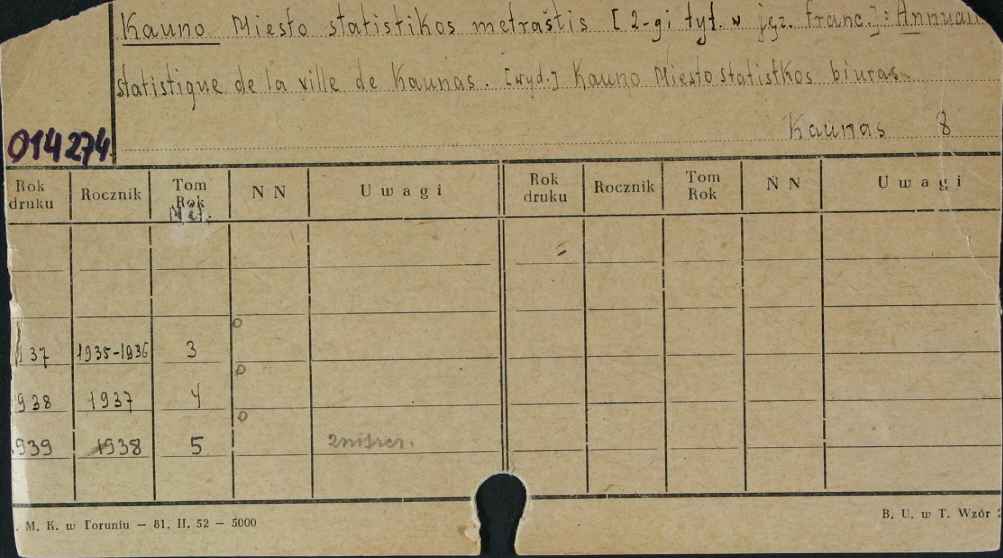 Kauno Miesto statistikos metraštis [2-gi tyt. w jęz. franc.]: Annuai
statistique de la ville de Kaunas. [wyd.] Kauno Miesto statistkos biuras
Kaunas 8
014274
Rok druku Rocznik Tom Rok Met. N N Uwagi Rok druku Rocznik Tom Rok N N Uwagi
37 1935-1936 3
938 1937 4
939 1938 5
. M. K. w Toruniu — 81. II. 52 — 5000
B. U. w T. Wzór 2